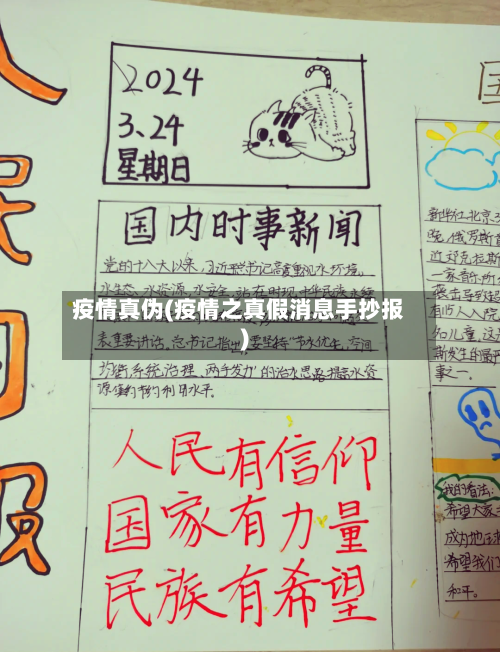 人民日报
2024
3、24
星期日
国内时事新闻
党的十八大以来，习近平总书记高度重视水环境、
水生态、水资源、水安全
疫情真伪(疫情之真假消息手抄报
)
表重要讲话，总书记指出，要坚持“节水优先、空间
均衡、系统治理、两手发力”的治水思路，提高水资
源集约节约利用水平。
人民有信仰
国家有力量
民族有希望
国
新华社北京3
晚，俄罗斯首
近郊克拉斯
一家音乐
袭击导致
有115人入院
和儿童，这
斯发生的最严
事之一。
我的看法：
希望大家
成为地球
希望我们
和平。